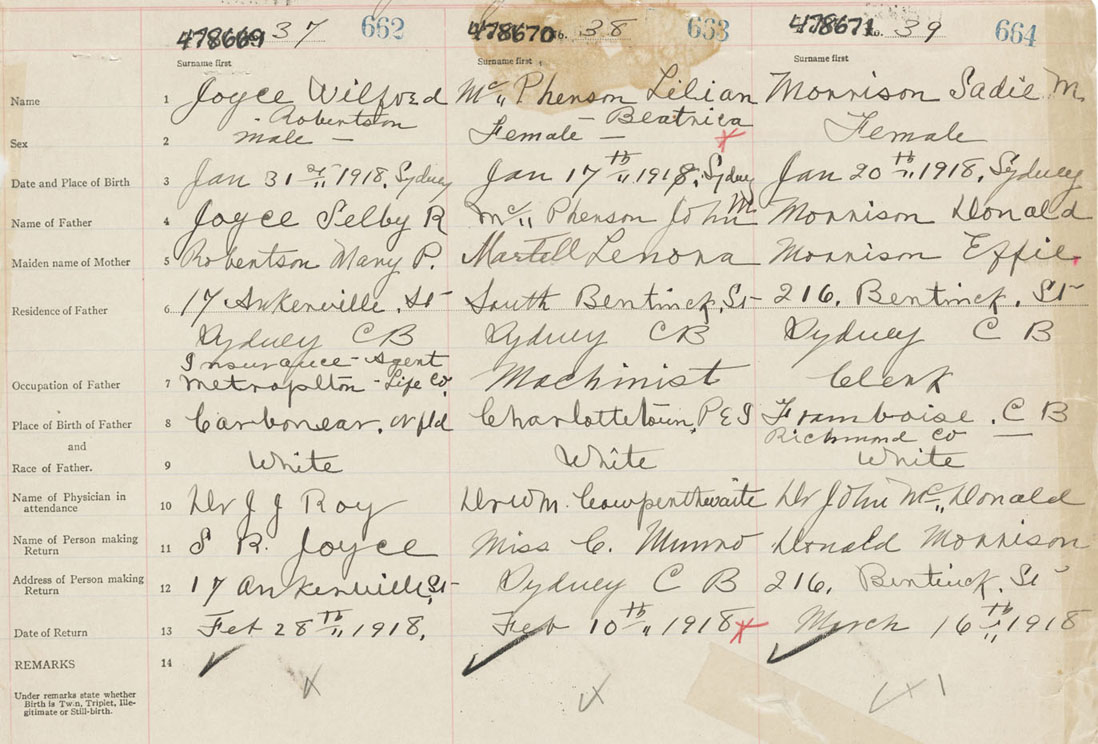 478669 37 662 478670 No. 38 663 478671 No. 39 664
Surname first Surname first Surname first
Name 1 Joyce Wilfred Mc,, Pherson Lilian Morrison Sadie M.
Robertson Beatrica
Sex 2 Male – Female – Female
Date and Place of Birth 3 Jan 31st,, 1918, Sydney Jan 17th,, 1918, Sydney Jan 20th,, 1918, Sydney
Name of Father 4 Joyce Selby R Mc,, Pherson John M Morrison Donald
Maiden name of Mother 5 Robertson Mary P. Martell Lenora Morrison Effie
Residence of Father 6 17 Ankerville, St South Bentinck, St 216, Bentinck, St
Sydney CB Sydney CB Sydney C B
Insurance – Agent
Occupation of Father 7 Metroplton – Life Co, Machinist Clerk
Place of Birth of Father 8 Carbonear, Nfld Charlottetown, P E I Framboise, C B
and Richmond Co
Race of Father. 9 White White White
Name of Physician in
attendance 10 Dr J J Roy Dr Wm. Cowpenthwaite Dr John Mc,, Donald
Name of Person making
Return 11 S R. Joyce Miss C. Munro Donald Morrison
Address of Person making
Return 12 17 Ankerville, St Sydney C B 216, Bentinck, St
Date of Return 13 Feb 28th,, 1918, Feb 10th,, 1918 March 16th,, 1918
REMARKS 14
Under remarks state whether
Birth is Twin, Triplet, Ille-
gitimate or Still-birth.